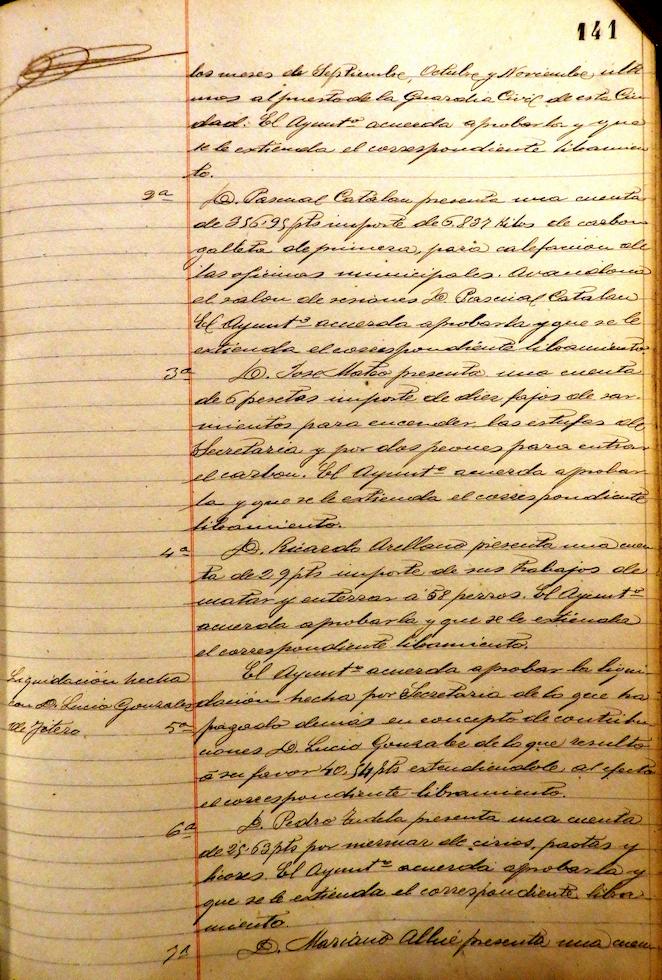 141
los meses de Septiembre, Octubre y Noviembre ulti
mos al puesto de la Guardia Civil de esta Ciu
dad. El Ayuntº acuerda aprobarla y que
se le extienda el correspondiente libramien
to.
2ª D. Pascual Catalan presenta una cuenta
de 356'95 pts importe de 6.837 Kilos de carbon
galleta de primera, para calefacion de
las oficinas municipales.
el salon de sesiones D. Pascual Catalan
El Ayuntº acuerda aprobarla y que se le
extienda el correspondiente libramiento
3ª D. Jose Mateo presenta una cuenta
de 6 pesetas importe de diez fajos de sar
mientos para encender las estufas de
Secretaria y por dos peones para entrar
el carbon. El Ayuntº acuerda aprobar
la y que se le extienda el correspondiente
libramiento.
4ª D. Ricardo Arellano presenta una cuen
ta de 29 pts importe de sus trabajos de
matar y enterrar á 58 perros. El Ayuntº
acuerda aprobarla y que se le extienda
el correspondiente libramiento.
Liquidación hecha
con D. Lucio Gonzalez
de Fitero.
El Ayuntº acuerda aprobar la liqui
dación hecha por Secretaria de lo que ha
5ª pagado demas en concepto de contribu
ciones D. Lucio Gonzalez de lo que resulta
á su favor 40'54 pts extendiendole al efecto
el correspondiente libramiento.
6ª D. Pedro Tudela presenta una cuenta
de 25'63 pts por mermar de cirios, pastas y
licores. El Ayuntº acuerda aprobarla y
que se le extienda el correspondiente libra
miento.
7ª D. Mariano presenta una cuen